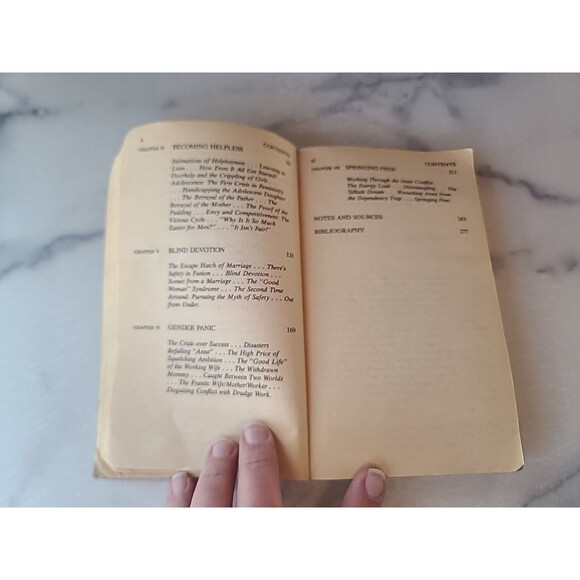 x CONTENTS
CHAPTER IV BECOMING HELPLESS
Intimations of Helplessness . . . Learning to
Lean . . . How Does It All Get Started?
Overhelp and the Crippling of Girls . . .
Adolescence: The First Crisis in Femininity
. . . Handicapping the Adolescent Daughter
. . . The Betrayal of the Father . . . The
Betrayal of the Mother . . . The Proof of the
Pudding . . . Envy and Competitiveness: The
Vicious Cycle . . . "Why Is It So Much
Easier for Men?" . . . "It Isn't Fair!"
CHAPTER V BLIND DEVOTION 131
The Escape Hatch of Marriage . . . There's
Safety in Fusion . . . Blind Devotion . . .
Scenes from a Marriage . . . The "Good
Woman" Syndrome . . . The Second Time
Around: Pursuing the Myth of Safety . . . Out
from Under.
CHAPTER VI GENDER PANIC 169
The Crisis over Success . . . Disasters
Befalling "Anne" . . . The High Price of
Squelching Ambition . . . The "Good Life"
of the Working Wife . . . The Withdrawn
Mommy . . . Caught Between Two Worlds
. . . The Frantic Wife/Mother/Worker . . .
Disguising Conflict with Drudge Work.
xi CONTENTS
CHAPTER VII SPRINGING FREE 211
Working Through the Inner Conflict . . .
The Energy Leak . . . Disentangling . . . The
Telltale Dream . . . Wrenching Away from
the Dependency Trap . . . Springing Free.
NOTES AND SOURCES
BIBLIOGRAPHY 277